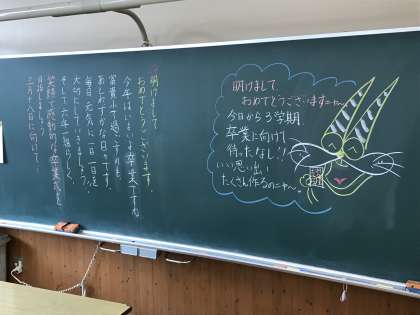 明けまして
おめでとうございます。
今年はいよいよ卒業ですね。
富貴小で過ごすのも、
あとわずかな日々です。
毎日元気に一日一日を
大切にしていきましょう。
そして、六年一組らしく、
笑顔で感動的な卒業式を
目指しましょう。
三月十八日に向けて!
明けまして、
おめでとうございますニャ〜。
今日から3学期
卒業に向けて、
待ったなし!!
いい思い出
たくさん作るのニャ〜。